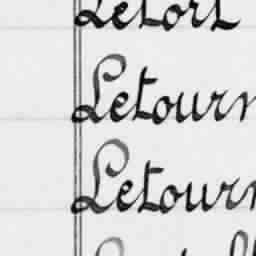 Letort
Letourn
Letourn